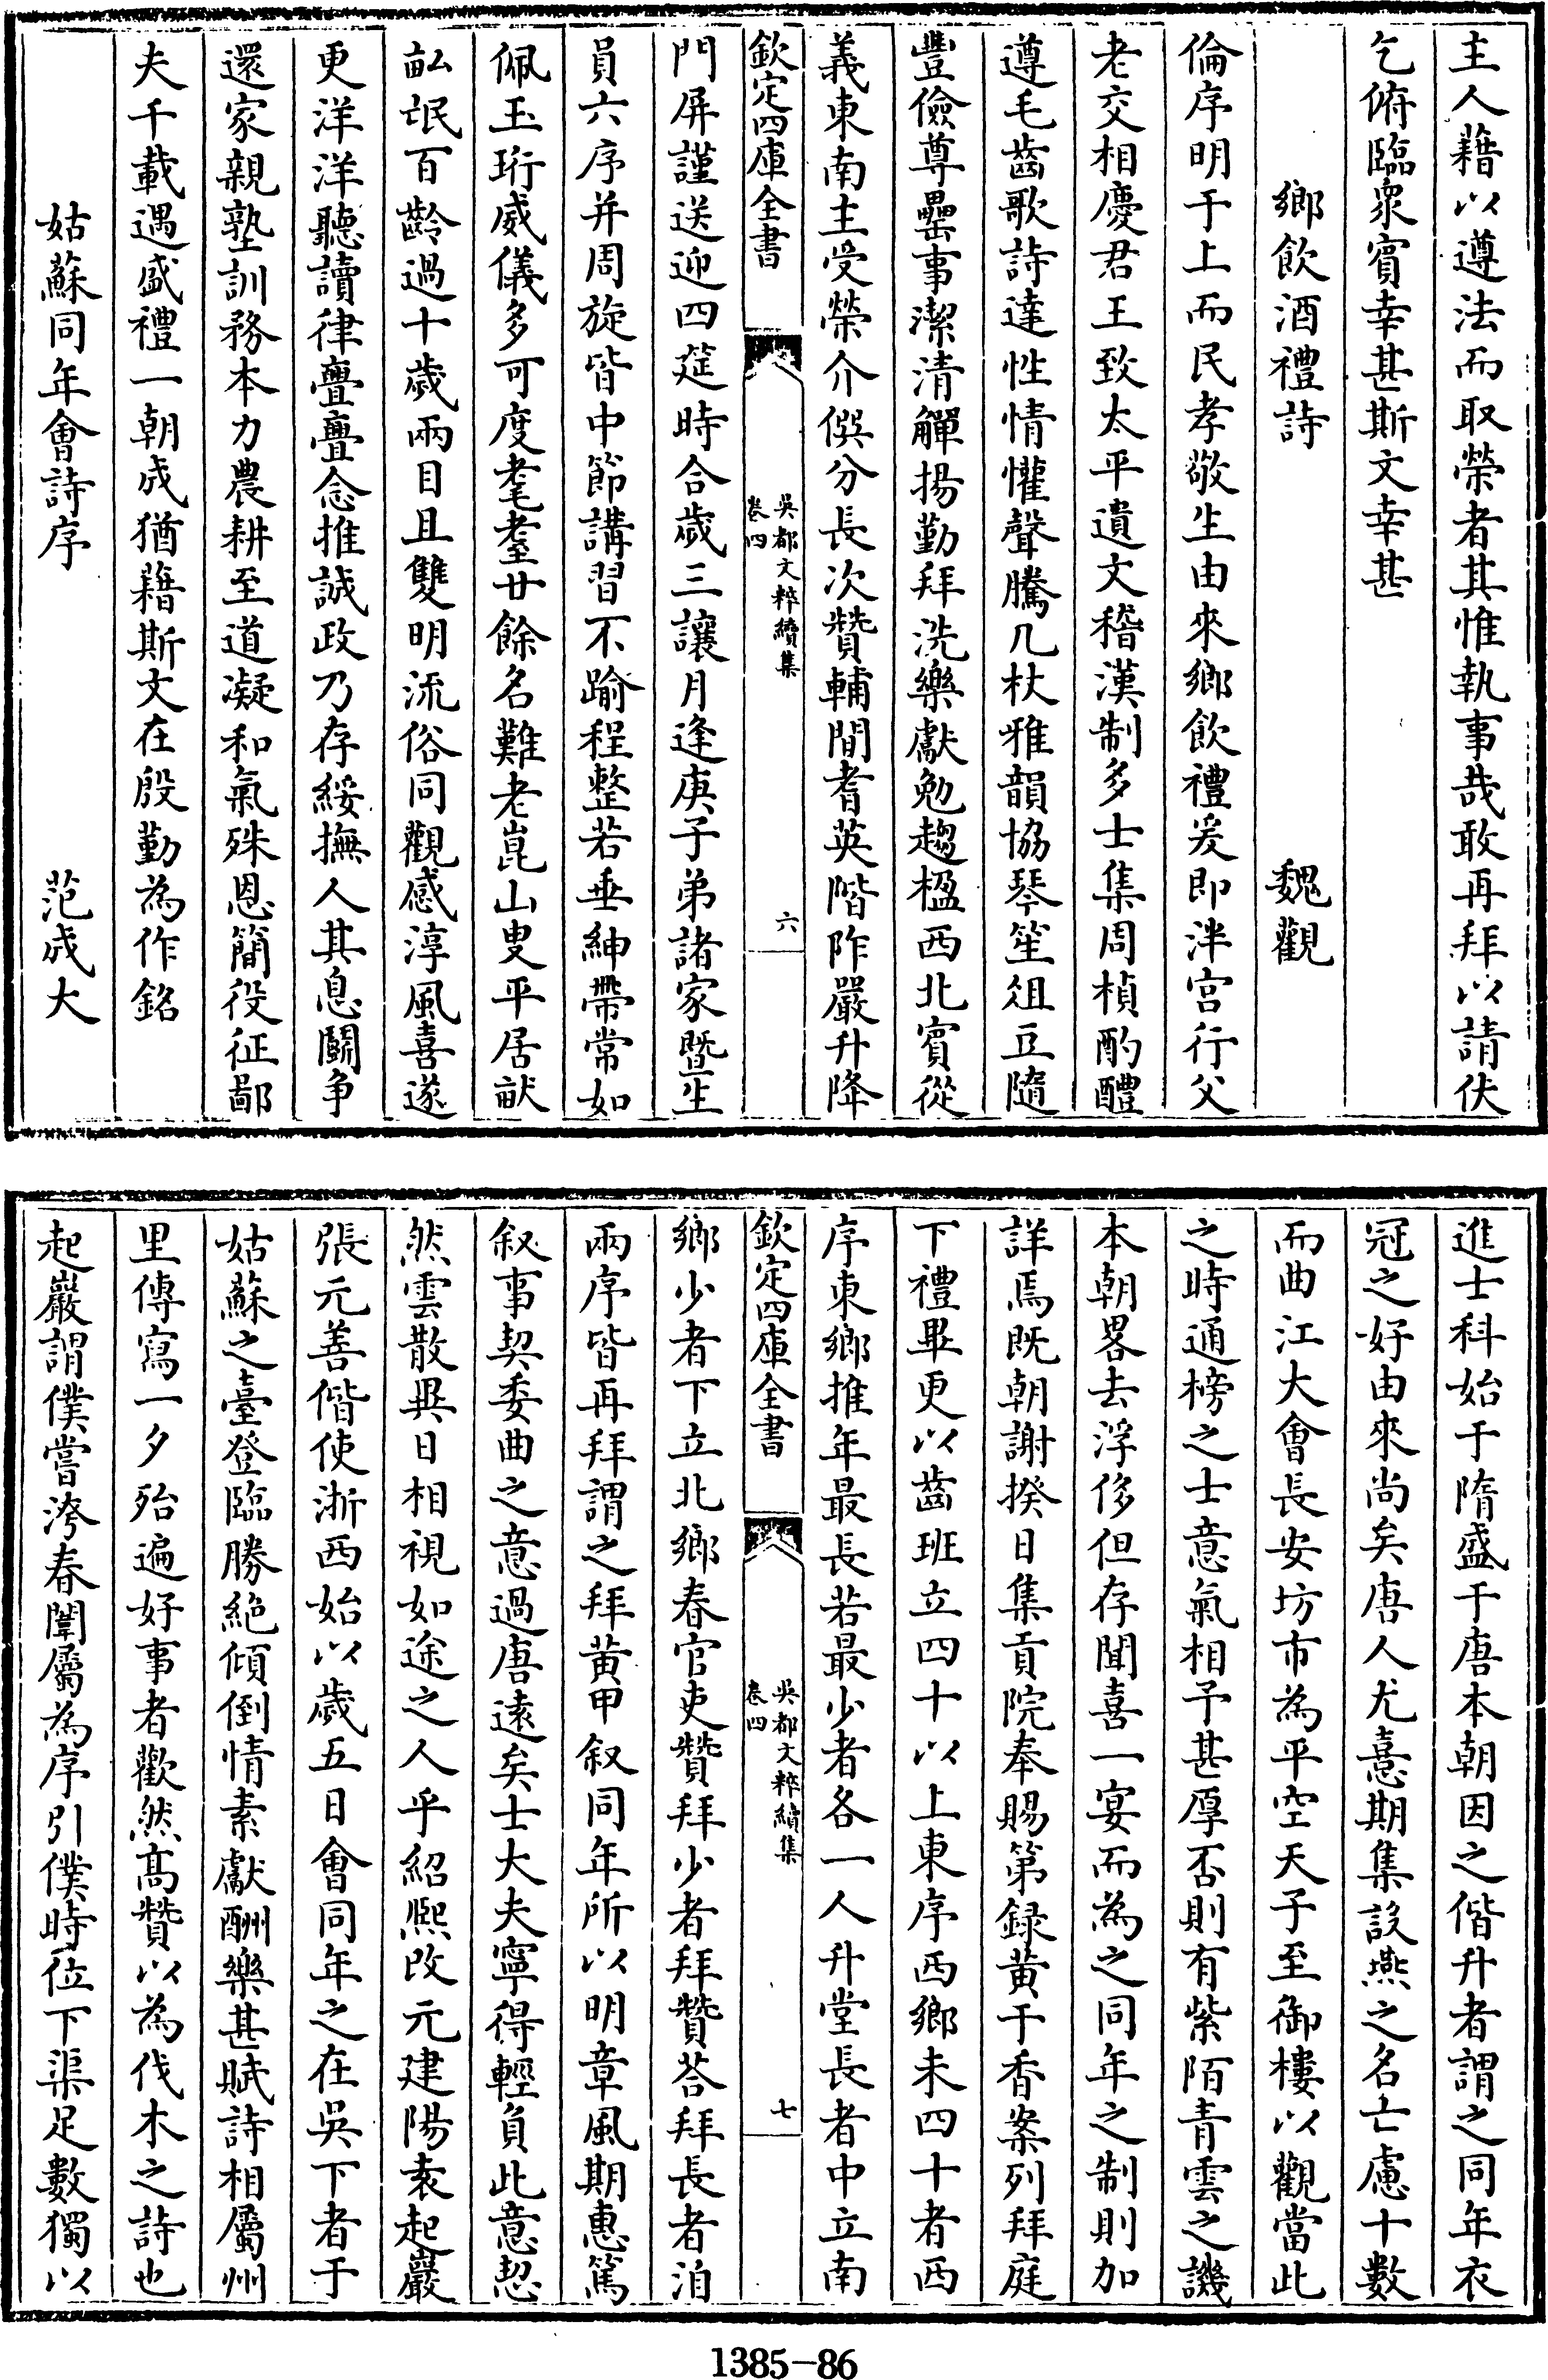 主人藉以遵法而取榮者其惟執事哉敢再拜以請伏
乞俯臨衆賓幸甚斯文幸甚
鄉飲酒禮詩 魏觀
倫序明于上而民孝敬生由來鄉飲禮爰即泮宫行父
老交相慶君王致太平遺文稽漢制多士集周楨酌醴
遵毛齒歌詩達性情懽聲騰几杖雅韻協琴笙俎豆隨
豐儉尊罍事潔清觶揚勤拜洗樂獻勉趨楹西北賓從
義東南主受榮介僎分長次贊輔間耆英階阼嚴升降
欽定四庫全書
吳都文粹續集
卷四
六
門屏謹送迎四筵時合歲三讓月逢庚子弟諸家曁生
員六序并周旋皆中節講習不踰程整若垂紳帶常如
佩玉珩威儀多可度耄耋廿餘名難老崑山叟平居畎
畆氓百齡過十歲兩目且雙明流俗同觀感淳風喜遂
更洋洋聽讀律亹亹念推誠政乃存綏撫人其息鬬争
還家親塾訓務本力農耕至道凝和氣殊恩簡役征鄙
夫千載遇盛禮一朝成猶藉斯文在殷勤為作銘
姑蘇同年會詩序 范成大
進士科始于隋盛于唐本朝因之偕升者謂之同年衣
冠之好由來尚矣唐人尤憙期集設燕之名亡慮十數
而曲江大會長安坊市為平空天子至御樓以觀當此
之時通榜之士意氣相予甚厚否則有紫陌青雲之譏
本朝畧去浮侈但存聞喜一宴而為之同年之制則加
詳焉既朝謝揆日集貢院奉賜第録黄于香案列拜庭
下禮畢更以齒班立四十以上東序西鄉未四十者西
序東鄉推年最長若最少者各一人升堂長者中立南
欽定四庫全書
吳都文粹續集
卷四
七
鄉少者下立北鄉春官吏贊拜少者拜贊荅拜長者洎
兩序皆再拜謂之拜黄甲叙同年所以明章風期惠篤
叙事契委曲之意過唐遠矣士大夫寧得輕負此意恝
然雲散異日相視如途之人乎紹熙改元建陽袁起巖
張元善偕使浙西始以歲五日會同年之在吳下者于
姑蘇之臺登臨勝絶傾倒情素獻酬樂甚賦詩相屬州
里傳寫一夕殆遍好事者歡然髙贊以為伐木之詩也
起巖謂僕嘗洿春闈屬為序引僕時位下渠足數獨以
1385-86